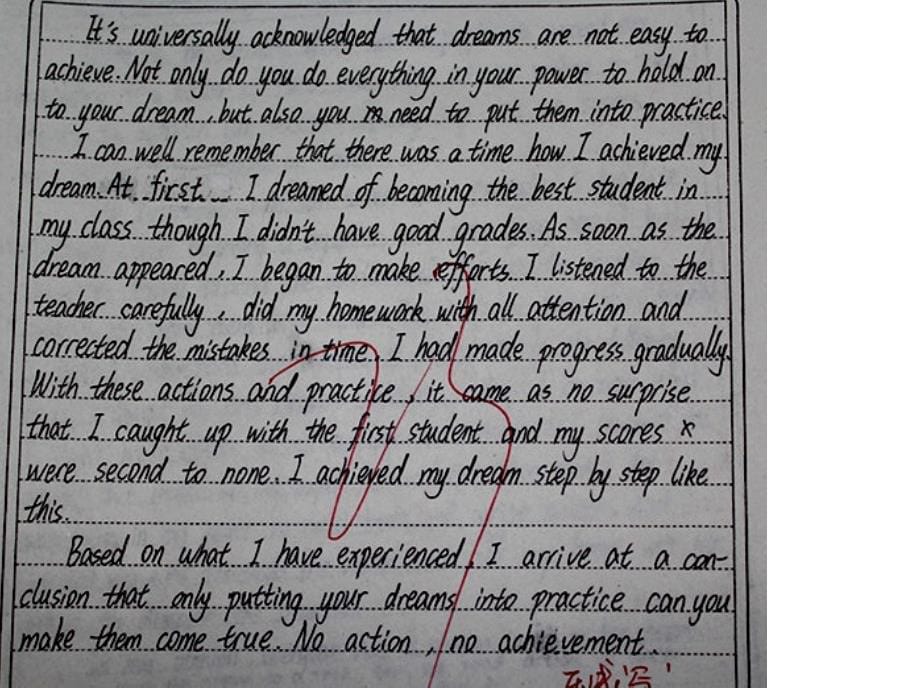 It's universally acknowledged that dreams are not easy to
achieve. Not only do you do everything in your power to hold on
to your dream, but also you need to put them into practice.
I can well remember that there was a time how I achieved my
dream. At first I dreamed of becoming the best student in
my class though I didn't have good grades. As soon as the
dream appeared, I began to make efforts. I listened to the
teacher carefully, did my homework with all attention and
corrected the mistakes in time. I had made progress gradually.
With these actions and practice, it came as no surprise
that I caught up with the first student and my scores
were second to none. I achieved my dream step by step like
this.
Based on what I have experienced, I arrive at a con-
clusion that only putting your dreams into practice can you
make them come true. No action, no achievement.